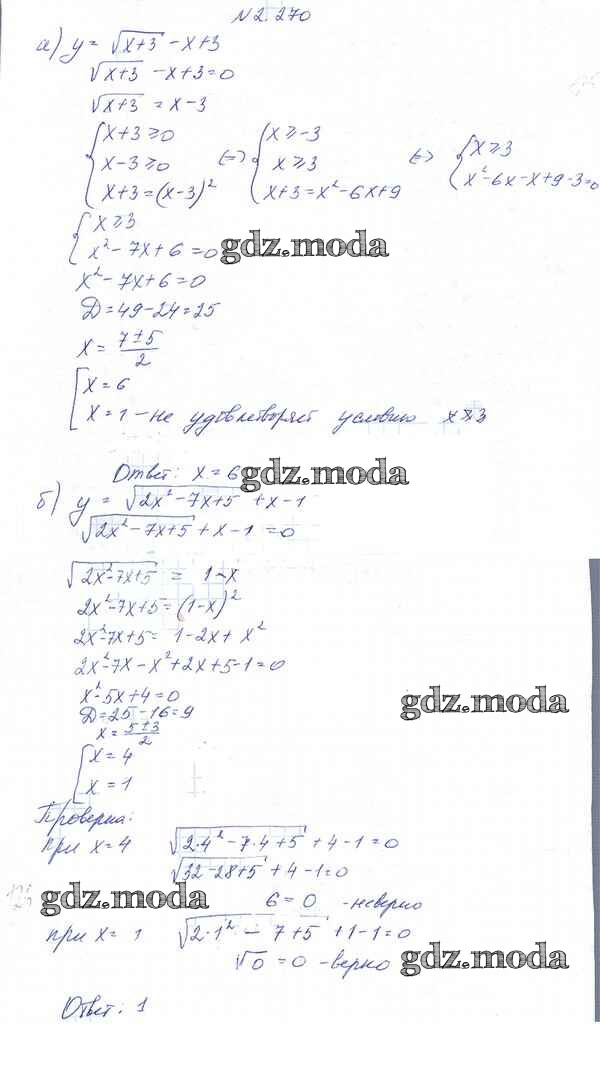 N 2. 270
а) y = √(x+3) - x+3
√(x+3) - x+3=0
√(x+3) = x-3
{ x+3 ≥ 0
x-3 ≥ 0
x+3 = (x-3)²
⇔ { x ≥ -3
x ≥ 3
x+3 = x²-6x+9
⇔ { x ≥ 3
x²-6x-x+9-3=0
{ x ≥ 3
x²-7x+6=0
gdz.moda
x²-7x+6=0
Д=49-24=25
x= (7±5)/2
[ x=6
x=1 - не удовлетворяет условию x≥3
Ответ: x=6
gdz.moda
б) y = √(2x²-7x+5) + x-1
√(2x²-7x+5) + x-1 =0
√(2x²-7x+5) = 1-x
2x²-7x+5=(1-x)²
2x²-7x+5= 1-2x+x²
2x²-7x-x²+2x+5-1=0
x²-5x+4=0
gdz.moda
Д=25-16=9
x= (5±3)/2
[ x=4
x=1
Проверка:
при x=4 √(2·4²-7·4+5) +4-1=0
√(32-28+5) +4-1=0
gdz.moda
6=0 -неверно
при x= 1 √(2·1²- 7+5) +1-1=0
√0 =0 -верно
gdz.moda
Ответ: 1